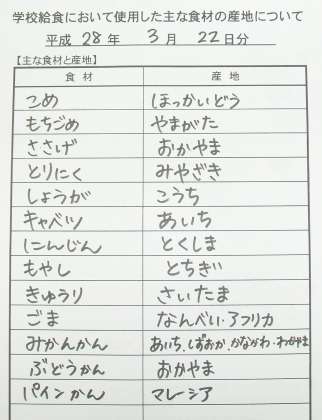 学校給食において使用した主な食材の産地について
平成 28 年 3 月 22 日分
【主な食材と産地】
食材 産地
こめ ほっかいどう
もちごめ やまがた
ささげ おかやま
とりにく みやざき
しょうが こうち
キャベツ あいち
にんじん とくしま
もやし とちぎ
きゅうり さいたま
ごま なんべい・アフリカ
みかんかん あいち、しずおか、かながわ・わかやま
ぶどうかん おかやま
パインかん マレーシア